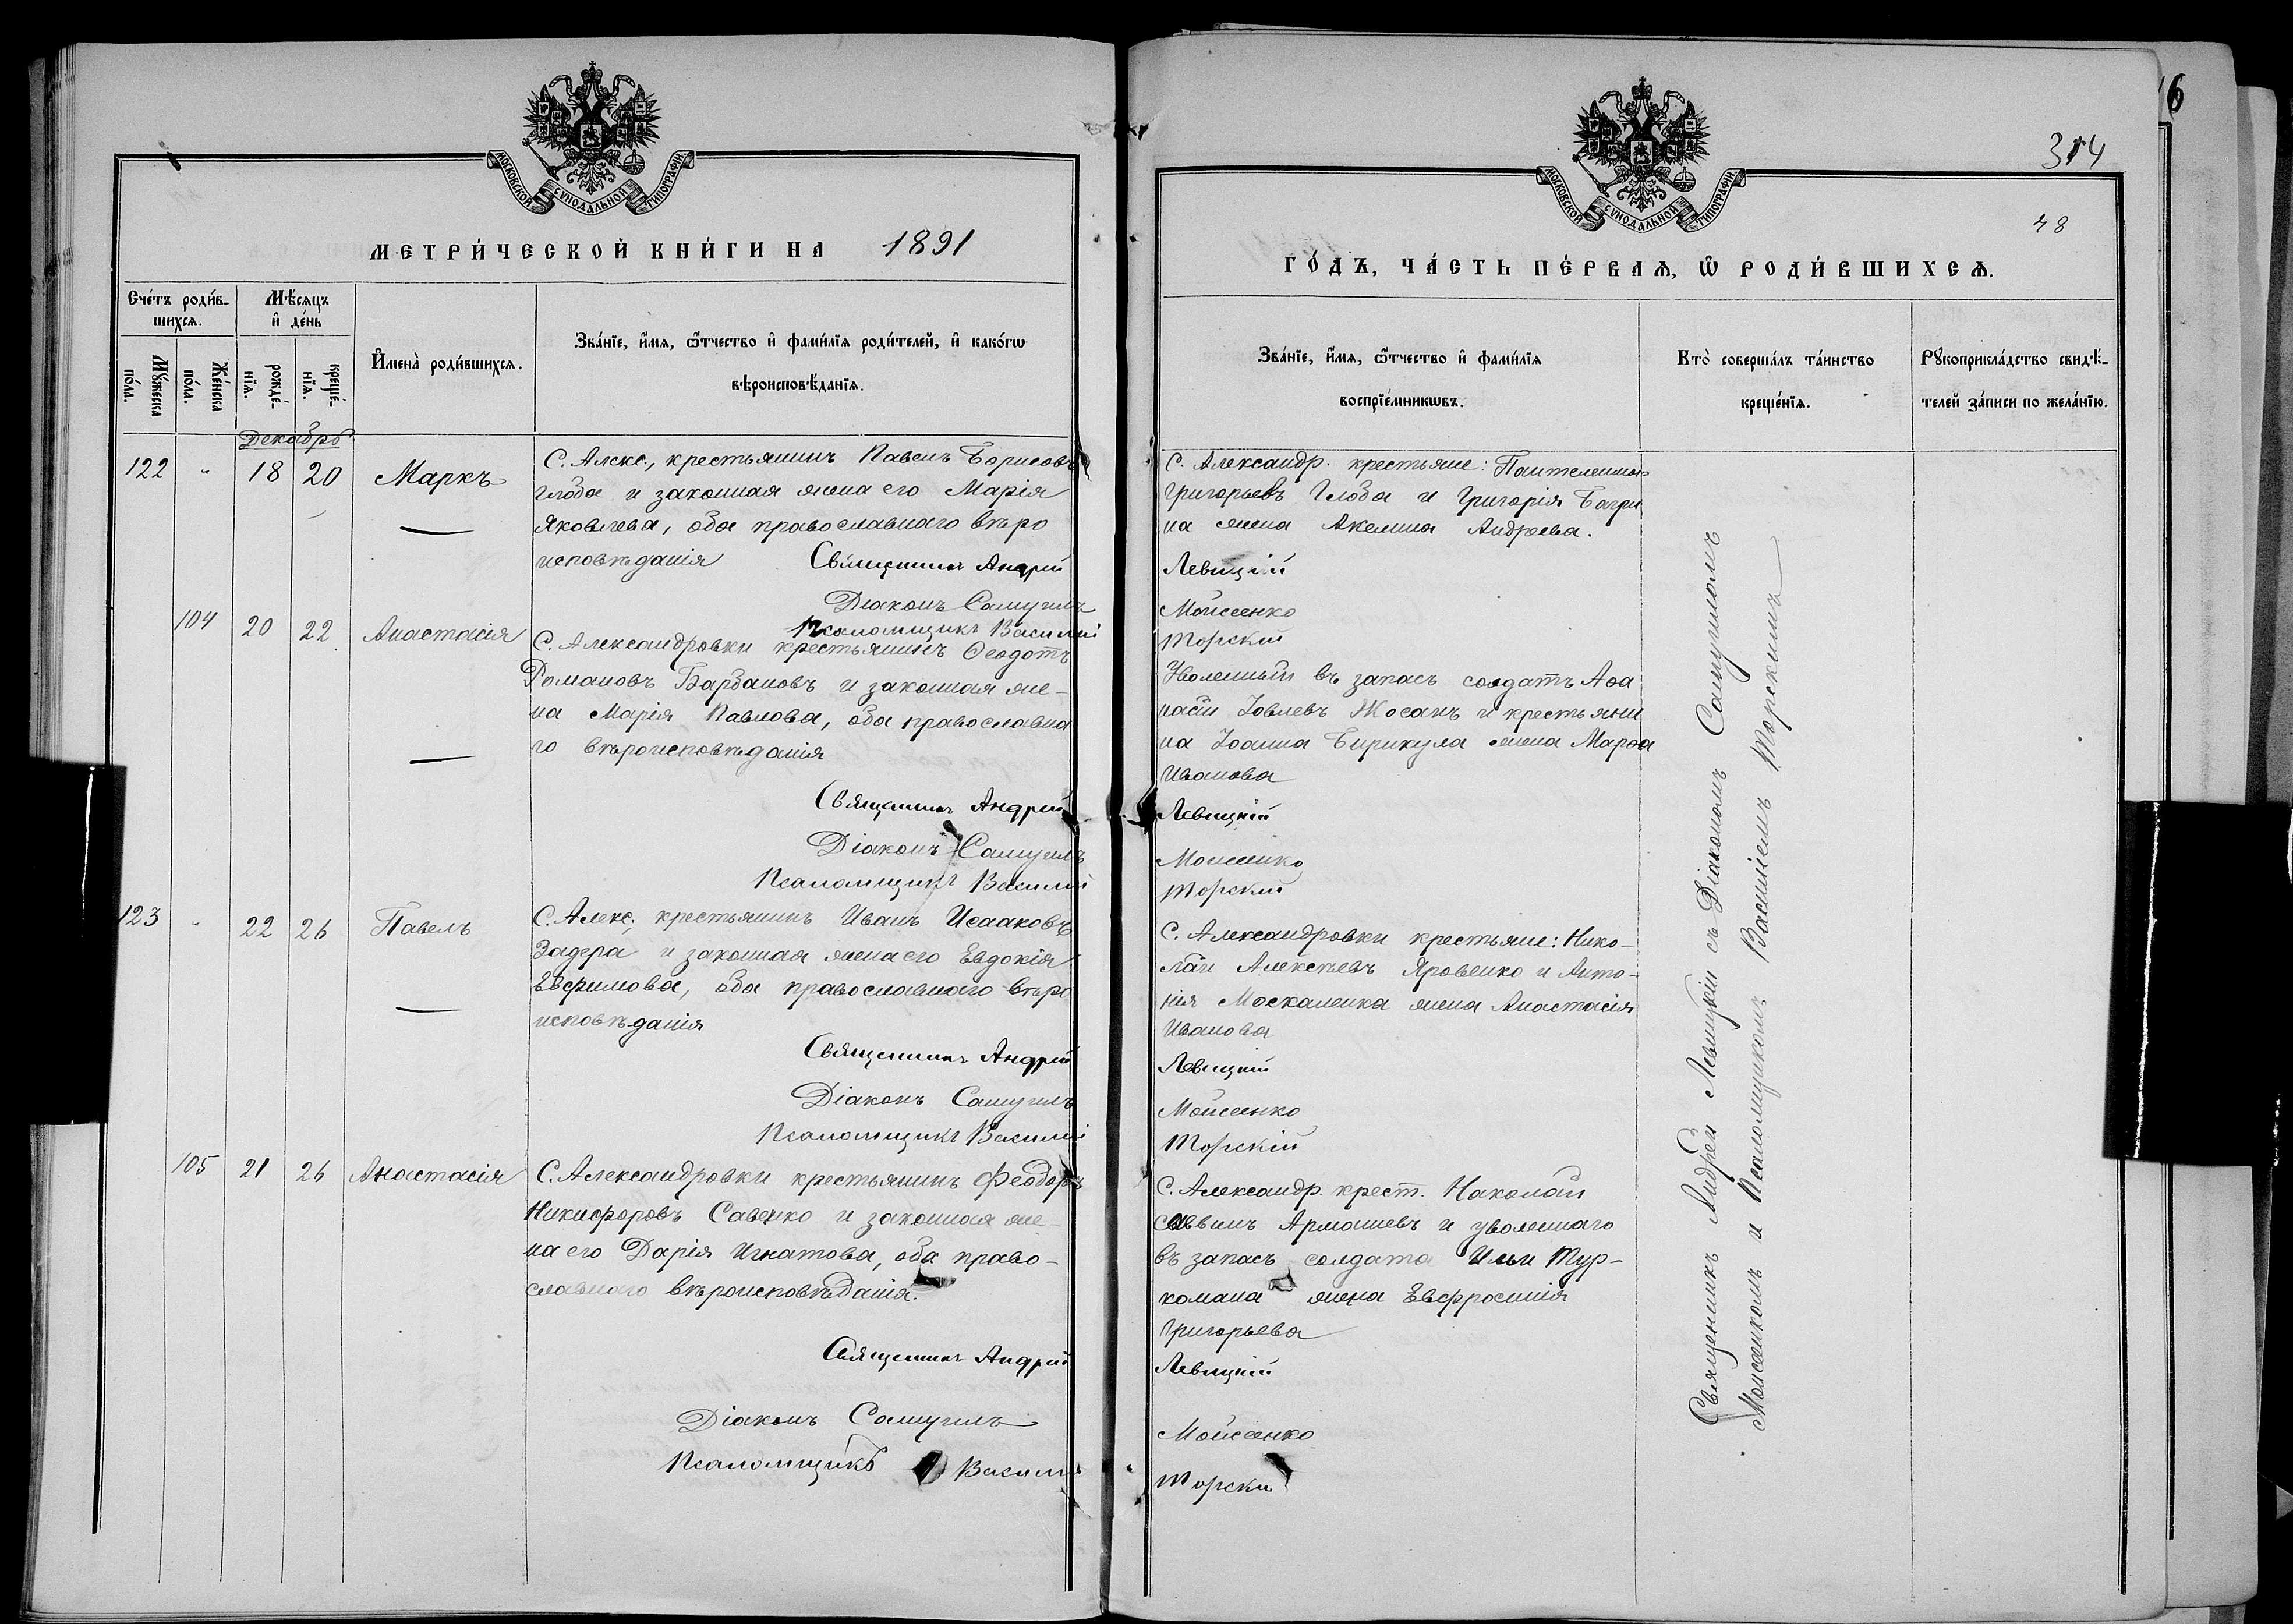 МОСКОВСКОЙ СѴНОДАЛЬНОЙ ТИПОГРАФІИ
МЕТРИ́ЧЕСКОЙ КНИ́ГИ НА 1891
Сче́тъ роди́в-
шихсѧ.
Мѣ́сѧцъ
и҆ де́нь
Мꙋ́жеска
по́ла.
Же́нска
по́ла.
рожде́-
нїѧ.
креще́-
нїѧ.
И҆мена̀ роди́вшихсѧ.
Зва́нїе, и҆́мѧ, ѻ҆́тчество и҆ фами́лїѧ роди́телей, и҆ како́гѡ
вѣроисповѣ́данїѧ.
Декабрь
122 „ 18 20 Маркъ
С. Алекс., крестьянинъ Павелъ Борисовъ
Глоба и законная жена его Марія
Яковлева, оба православнаго вѣро
исповѣданія Священникъ Андрей
Діаконъ Самуилъ
Псаломщикъ Василій
104 20 22 Анастасія
С. Александровки крестьянинъ Ѳеодотъ
Романовъ Барбановъ и законная же-
на Марія Павлова, оба православна
го вѣроисповѣданія
Священникъ Андрей
Діаконъ Самуилъ
Псаломщикъ Василій
123 „ 22 26 Павелъ
С. Алекс. крестьянинъ Иванъ Исааковъ
Задера и законная жена его Евдокія
Евфимова, оба православнаго вѣро
исповѣданія
Священникъ Андрей
Діаконъ Самуилъ
Псаломщикъ Василій
105 21 26 Анастасія
С. Александровки крестьянинъ Феодоръ
Никифоровъ Савенко и законная же-
на его Дарія Игнатова, оба право-
славнаго вѣроисповѣданія.
Священникъ Андрей
Діаконъ Самуилъ
Псаломщикъ Василій
6
314
48
МОСКОВСКОЙ СѴНОДАЛЬНОЙ ТИПОГРАФІИ
ГО́ДЪ, ЧА́СТЬ ПЕ́РВАѦ, Ѡ҆ РОДИ́ВШИХСѦ.
Зва́нїе, и҆́мѧ, ѻ҆́тчество и҆ фами́лїѧ
воспрїе́мникѡвъ.
Кто̀ соверша́лъ та́инство
креще́нїѧ.
Рꙋкоприкла́дство свидѣ́-
телей за́писи по жела́нїю.
С. Александр. крестьяне: Пантелеимонъ
Григорьевъ Глоба и Григорія Багри
на жена Акелина Андреева.
Левицкій
Мойсеенко
Торскій
Уволенный въ запасъ солдатъ Аѳа
насій Іовлевъ Жосанъ и крестьяни
на Іоанна Бирикула жена Марѳа
Иванова
Левицкій
Мойсеенко
Торскій
С. Александровки крестьяне: Нико-
лай Алексѣевъ Яровенко и Анто-
нія Москаленка жена Анастасія
Иванова
Левицкій
Мойсеенко
Торскій
С. Александр. крест. Николай
Саввинъ Армашевъ и уволеннаго
въ запасъ солдата Ильи Тур-
комана жена Евфросинія
Григорьева
Левицкій
Мойсеенко
Торскій
Священникъ Андрей Левицкій съ Діакономъ Самуиломъ
Мойсеенкомъ и Псаломщикомъ Василіемъ Торскимъ